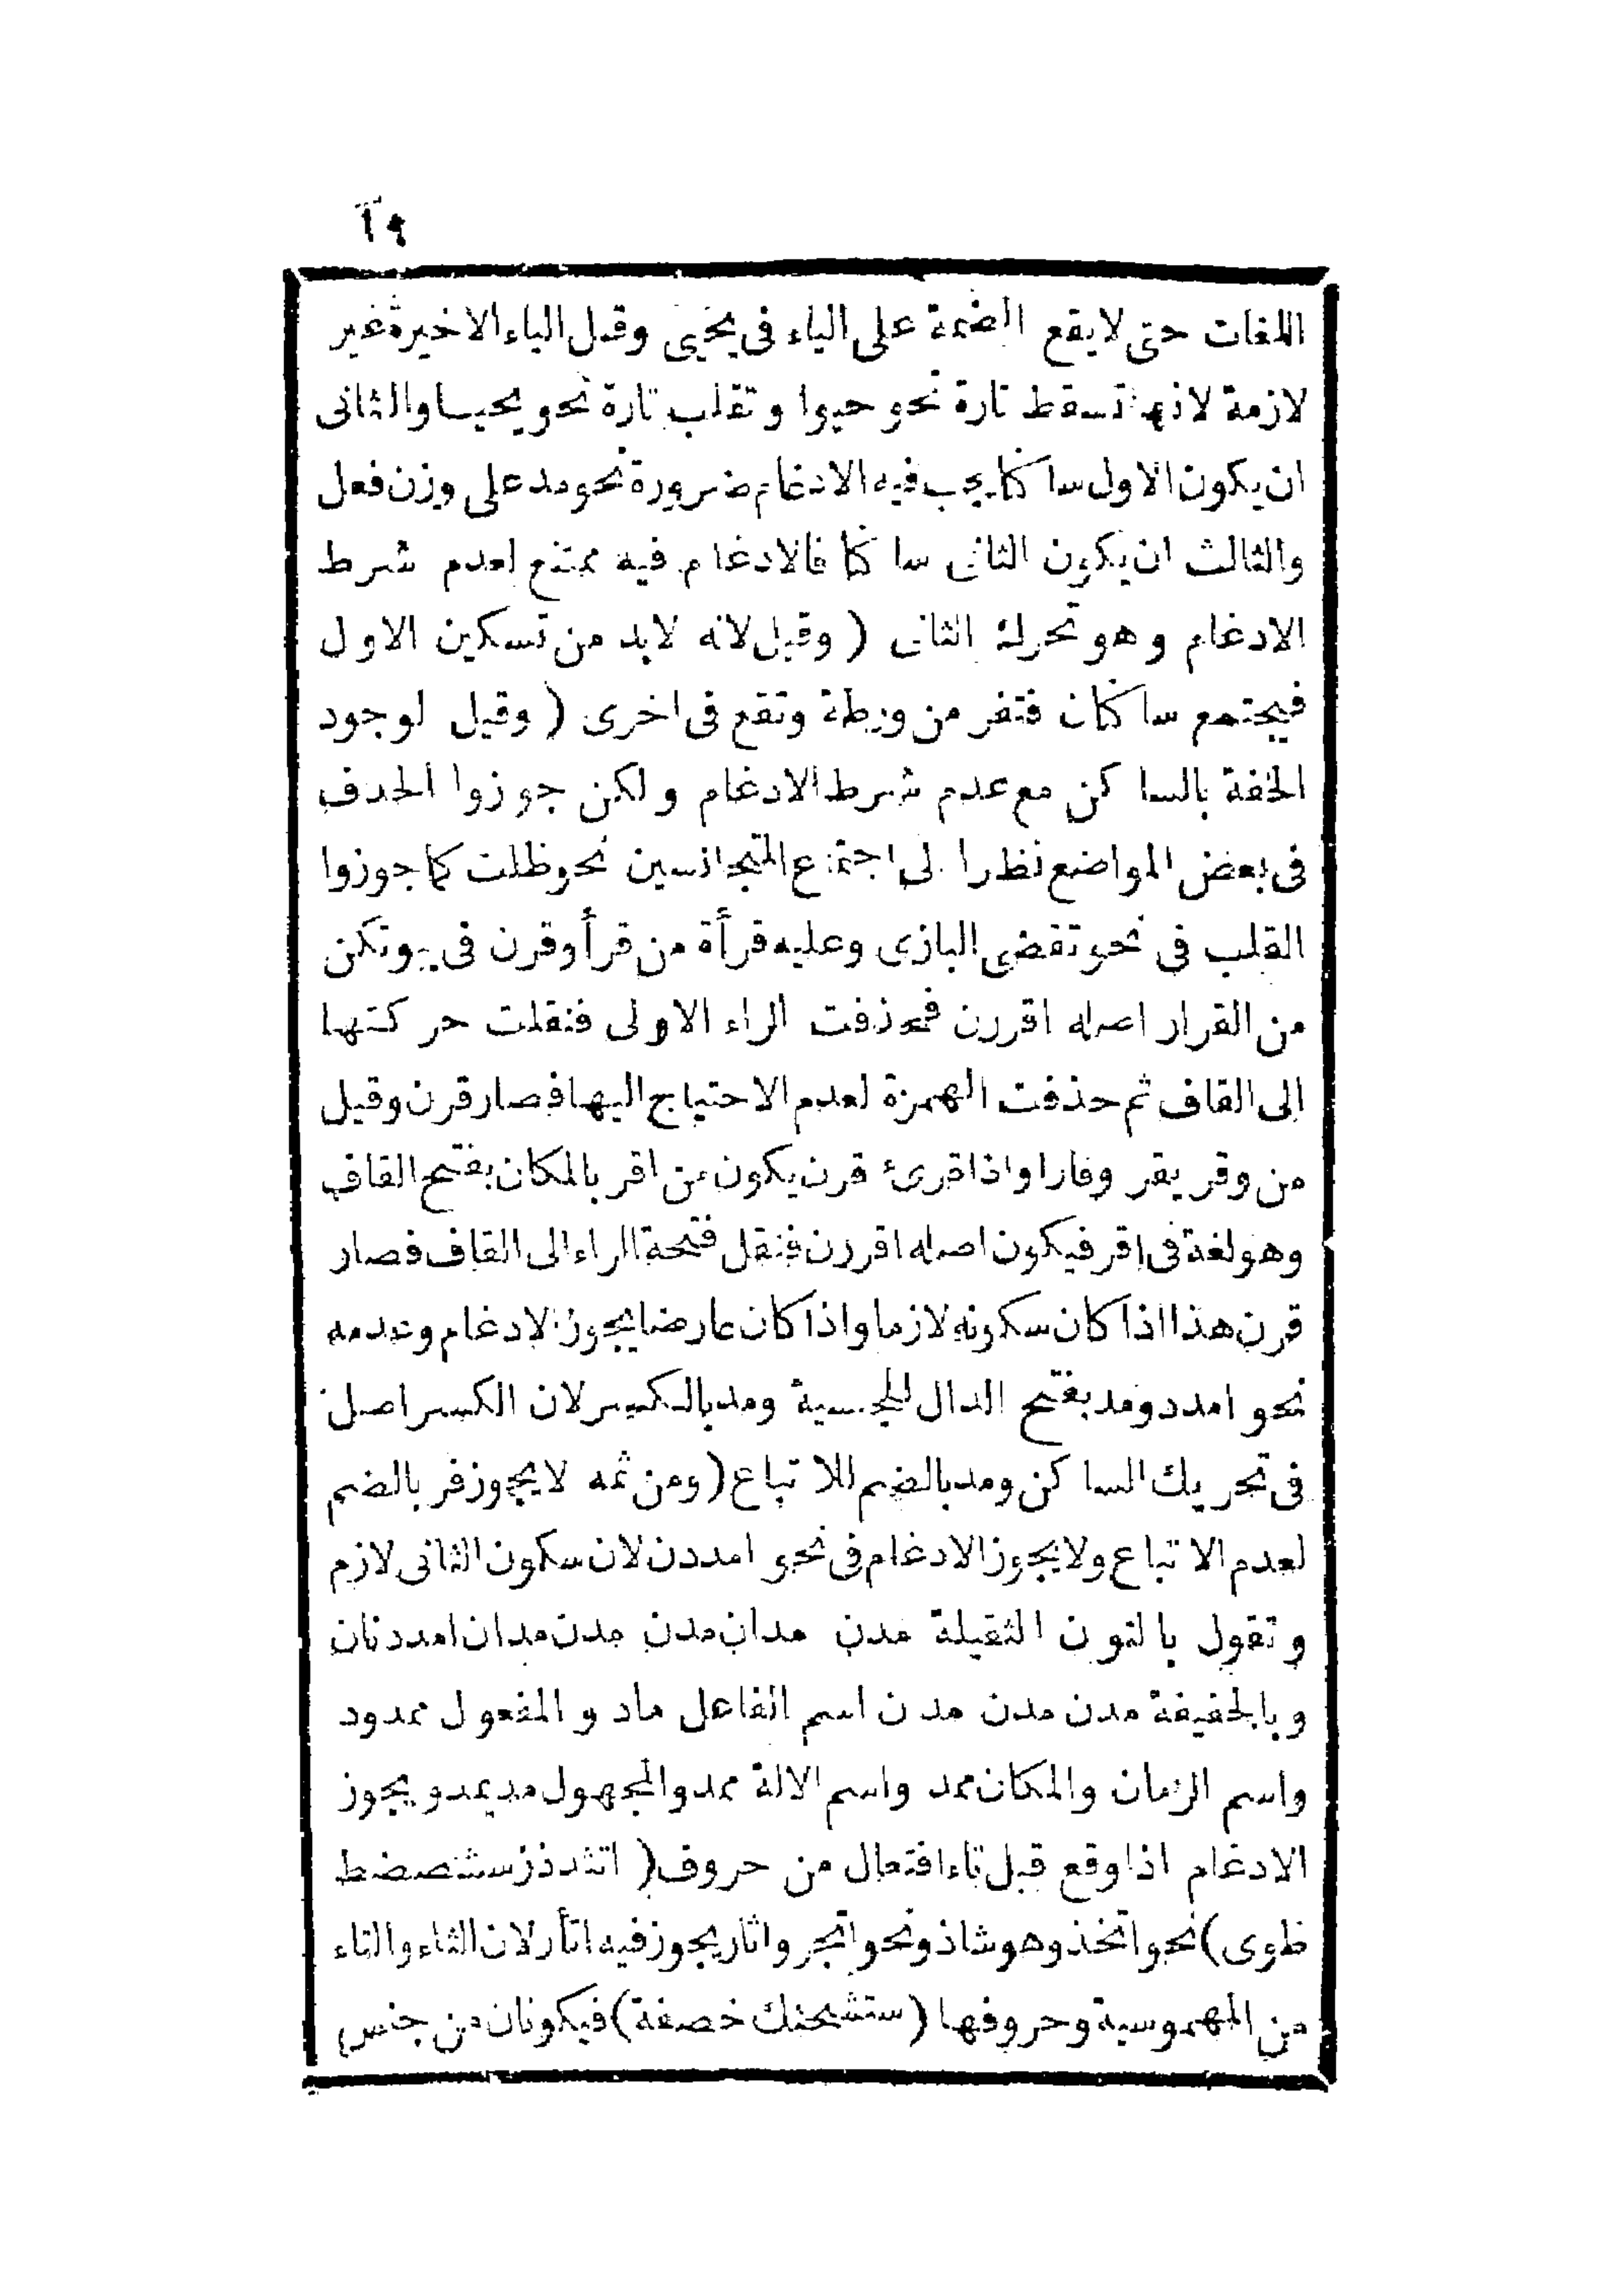 ٢٩
اللغات حتى لا يقع الضمة على الياء فى يحيى وقيل الياء الاخيرة غير
لازمة لانها تسقط تارة نحو حيوا وتقلب تارة نحو يحيا والثانى
ان يكون الاول ساكنا يجب فيه الادغام ضرورة نحو مد على وزن فعل
والثالث ان يكون الثانى ساكنا فالادغام فيه ممتنع لعدم شرط
الادغام وهو تحرك الثانى (وقيل لانه لا بد من تسكين الاول
فيجتمع ساكنان فتفر من ورطة وتقع فى اخرى (وقيل لوجود
الخفة بالساكن مع عدم شرط الادغام ولكن جوزوا الحذف
فى بعض المواضع نظرا الى اجتماع المتجانسين نحو ظلت كما جوزوا
القلب فى نحو تقضى البازى وعليه قرأة من قرأ وقرن فى بيوتكن
من القرار اصله اقررن فحذفت الراء الاولى فنقلت حركتها
الى القاف ثم حذفت الهمزة لعدم الاحتياج اليها فصار قرن وقيل
من وقر يقر وقارا واذا قرئ قرن يكون من اقر بالمكان بفتح القاف
وهو لغة فى اقر فيكون اصله اقررن فنقل فتحة الراء الى القاف فصار
قرن هذا اذا كان سكونه لازما واذا كان عارضا يجوز الادغام وعدمه
نحو امدد ومد بفتح الدال للجنسية ومد بالكسر لان الكسر اصل
فى تحريك الساكن ومد بالضم للاتباع (ومن ثمه لا يجوز فر بالضم
لعدم الاتباع ولا يجوز الادغام فى نحو امددن لان سكون الثانى لازم
وتقول بالنون الثقيلة مدن مدان مدن مدن مدان امددنان
وبالخفيفة مدن مدن مدن اسم الفاعل ماد والمفعول ممدود
واسم الزمان والمكان ممد واسم الالة ممد والمجهول مد يمد ويجوز
الادغام اذا وقع قبل تاء افتعال من حروف (اتثدذزسشصضط
ظوى) نحو اتخذ وهو شاذ ونحو اتجر واثار يجوز فيه اتأر لان الثاء والتاء
من المهموسية وحروفها (ستشحثك خصفة) فيكونان من جنس